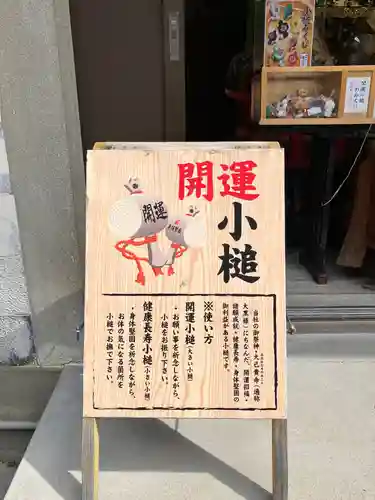 開運
小槌
開運
当社の御祭神・大己貴命(通称
大黒様)にちなんだ、開運招福・
諸願成就・健康長寿・身体堅固の
御利益がある小槌です。
※使い方
開運小槌(大きい小槌)
・お願い事を祈念しながら、
小槌をお振り下さい。
健康長寿小槌(小さい小槌)
・身体堅固を祈念しながら、
お体の気になる箇所を
小槌で撫で下さい。